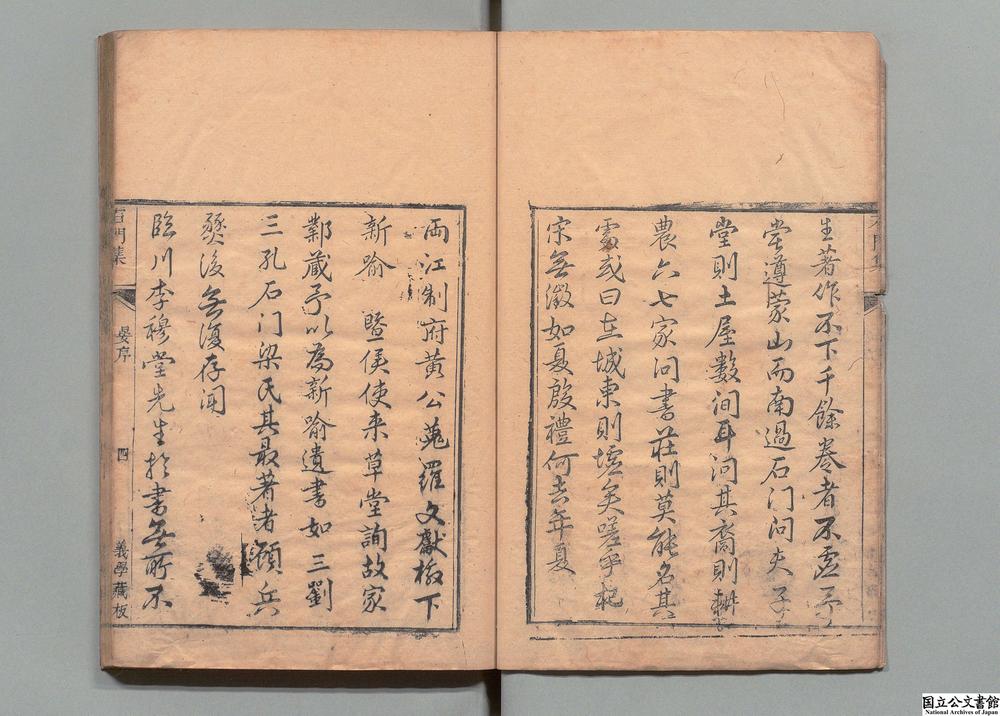 生著作不下千餘卷者不虛予
嘗遵蒙山而南過石门问夫子
堂則土屋數间耳问其裔則耕
農六七家问書莊則莫能名其
處或曰在城東則墟矣嗟乎杞
宋無徵如夏殷禮何去年夏
兩江制府黄公蒐羅文獻檄下
新喻 暨侯使来草堂詢故家
鄴藏予以為新喻遺書如三劉
三孔石门梁氏其最著者顧兵
燹後無復存闻
臨川李穆堂先生於書無所不
石門集
晏序
四
義學藏板
国立公文書館
National Archives of Japan